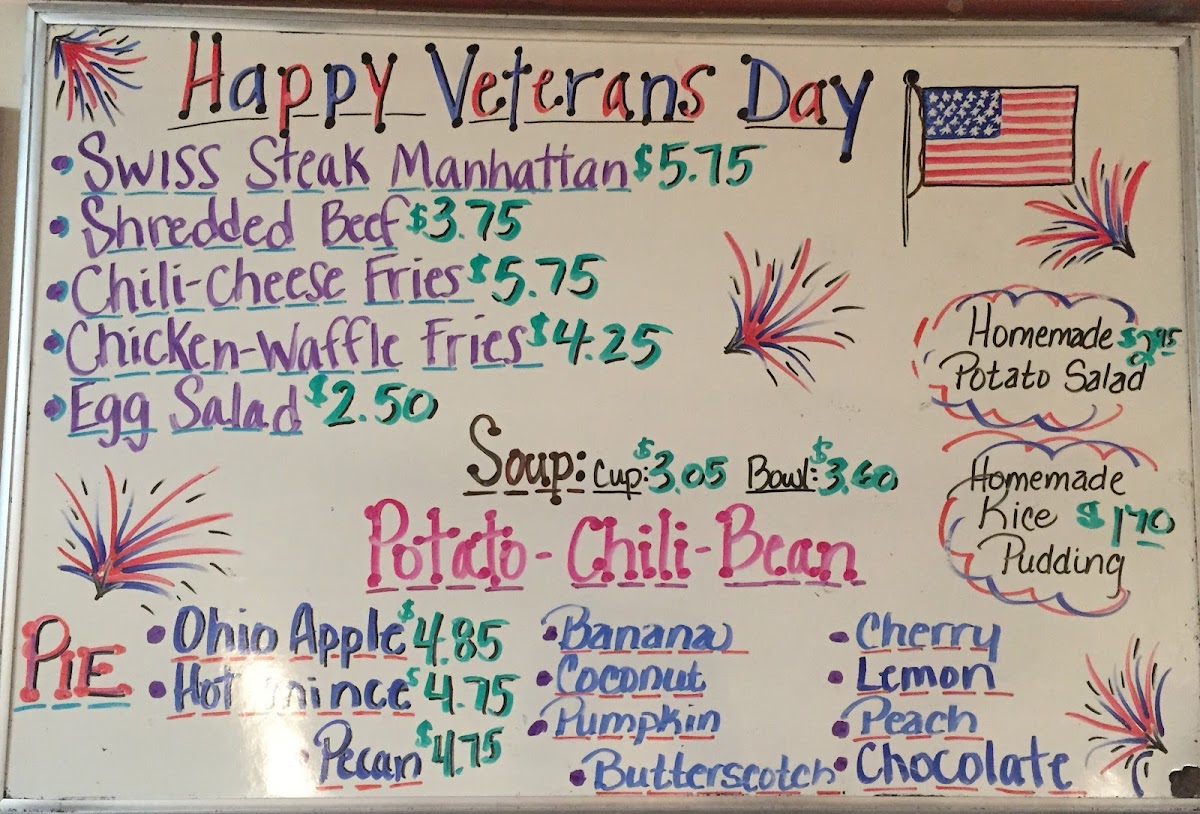 Happy Veterans Day
• Swiss Steak Manhattan $5.75
• Shredded Beef $3.75
• Chili-Cheese Fries $5.75
• Chicken-Waffle Fries $4.25
• Egg Salad $2.50
Homemade $2.95
Potato Salad
Soup: Cup: $3.05 Bowl: $3.60
Potato - Chili - Bean
Homemade
Rice $1.70
Pudding
PIE
• Ohio Apple $4.85
• Hot mince $4.75
• Pecan $4.75
• Banana
• Coconut
• Pumpkin
• Butterscotch
• Cherry
• Lemon
• Peach
• Chocolate